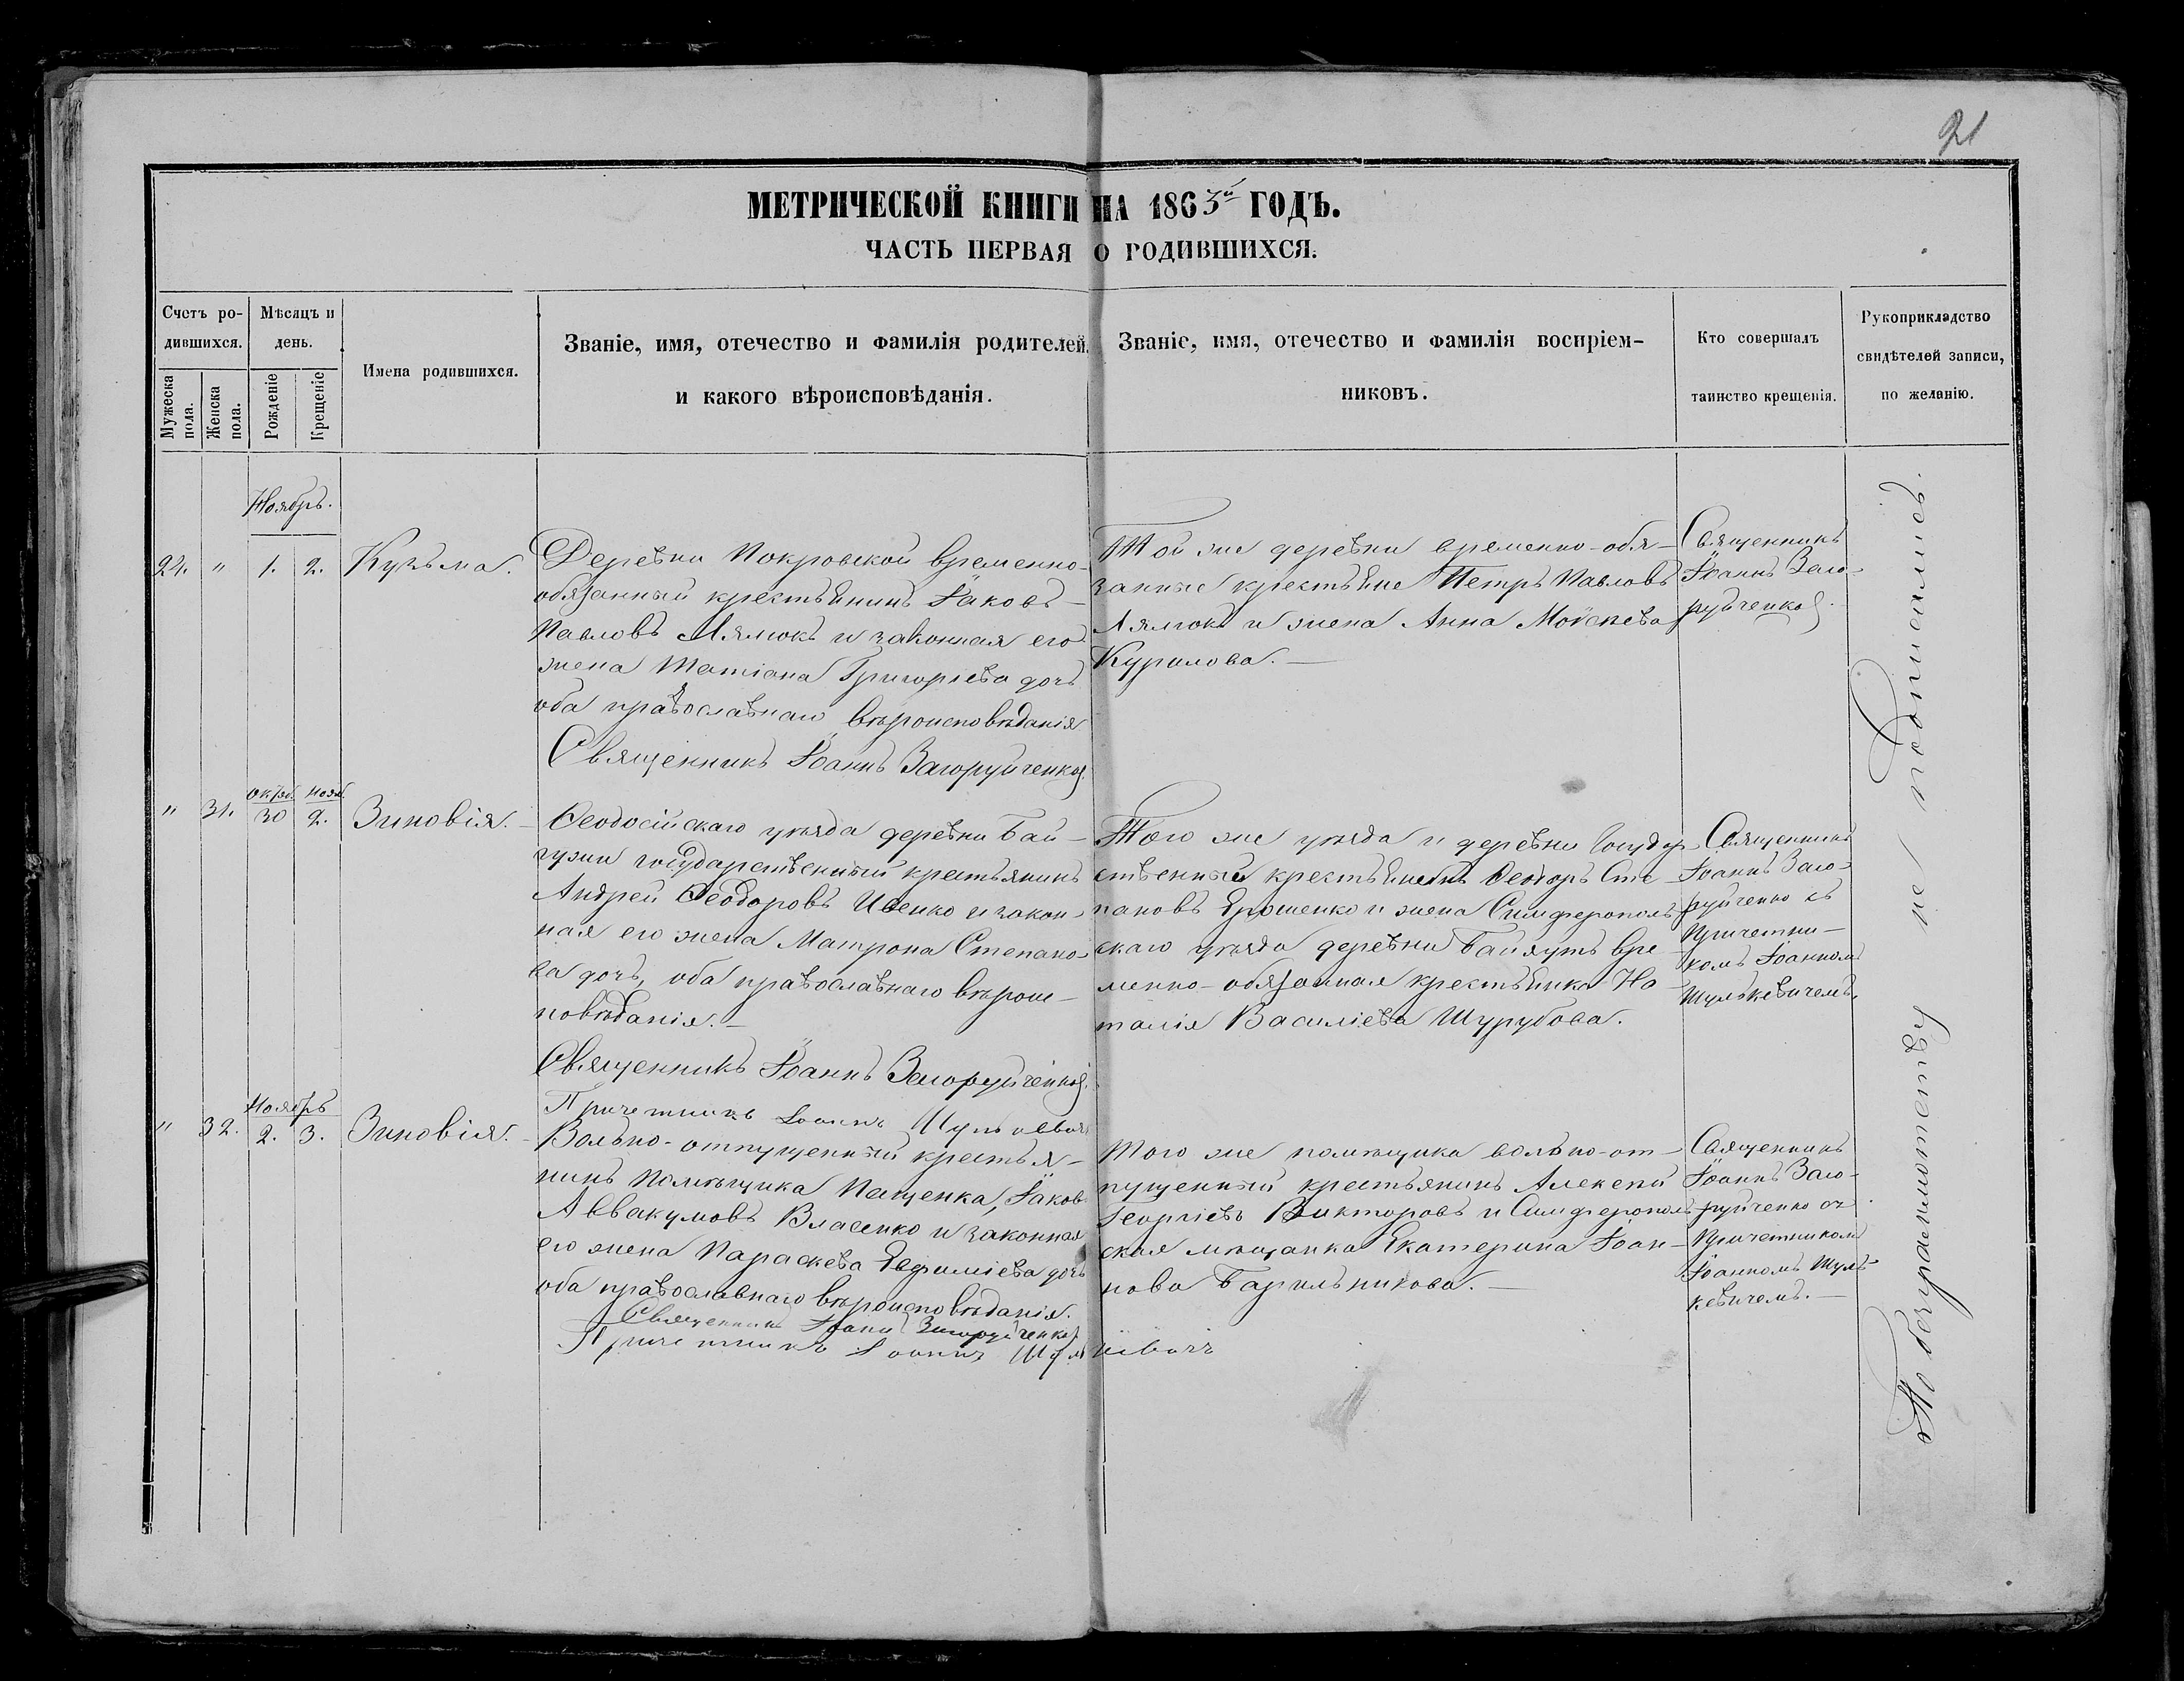 21
МЕТРИЧЕСКОЙ КНИГИ НА 1863й ГОДЪ.
ЧАСТЬ ПЕРВАЯ О РОДИВШИХСЯ.
Счетъ ро-
дившихся.
Мужеска
пола.
Женска
пола.
Мѣсяцъ и
день.
Рожденіе
Крещеніе
Имена родившихся.
Званіе, имя, отечество и фамилія родителей,
и какого вѣроисповѣданія.
Званіе, имя, отечество и фамилія воспріем-
никовъ.
Кто совершалъ
таинство крещенія.
Рукоприкладство
свидѣтелей записи,
по желанію.
Ноябрь.
24. " 1. 2. Кузьма.
Деревни Покровской временно-
обязанный крестьянинъ Іаковъ
Павловъ Лялюкъ и законная его
жена Татіана Григоріева дочь
оба православнаго вѣроисповѣданія
Священникъ Іоаннъ Загоруйченко
Той же деревни временно-обя-
занные крестьяне Петръ Павловъ
Лялюкъ и жена Анна Моѵсеева
Курилова.
Священникъ
Іоаннъ Заго-
руйченко
" 31. Октяб. 30 Нояб. 2. Зиновія.
Ѳеодосійскаго уѣзда деревни Бай-
гужи государственный крестьянинъ
Андрей Ѳеодоровъ Ивенко и закон-
ная его жена Матрона Степано-
ва дочь, оба православнаго вѣроис-
повѣданія.
Священникъ Іоаннъ Загоруйченко
Причетникъ Іоаннъ Шулькевичъ
Того же уѣзда и деревни Государ-
ственный крестьянинъ Ѳеодоръ Сте-
пановъ Ярошенко и жена Симферополь
скаго уѣзда деревни Баяутъ вре-
менно-обязанная крестьянка На-
талія Василіева Шурубова.
Священникъ
Іоаннъ Заго-
руйченко съ
Причетни-
комъ Іоанномъ
Шулькевичемъ.
" 32. Ноябрь 2. 3. Зиновія.
Вольно-отпущенный крестья-
нинъ помѣщика Пащенка, Іаковъ
Аввакумовъ Власенко и законная
его жена Параскева Евфиміева дочь
оба православнаго вѣроисповѣданія.
Священникъ Іоаннъ Загоруйченко
Причетникъ Іоаннъ Шулькевичъ
Того же помѣщика вольно-от-
пущенный крестьянинъ Алексей
Георгіевъ Викторовъ и Симферополь
ская мѣщанка Екатерина Іоан-
нова Барильникова.
Священникъ
Іоаннъ Заго-
руйченко съ
Причетникомъ
Іоанномъ Шуль-
кевичемъ.
По безграмотству не подписались.